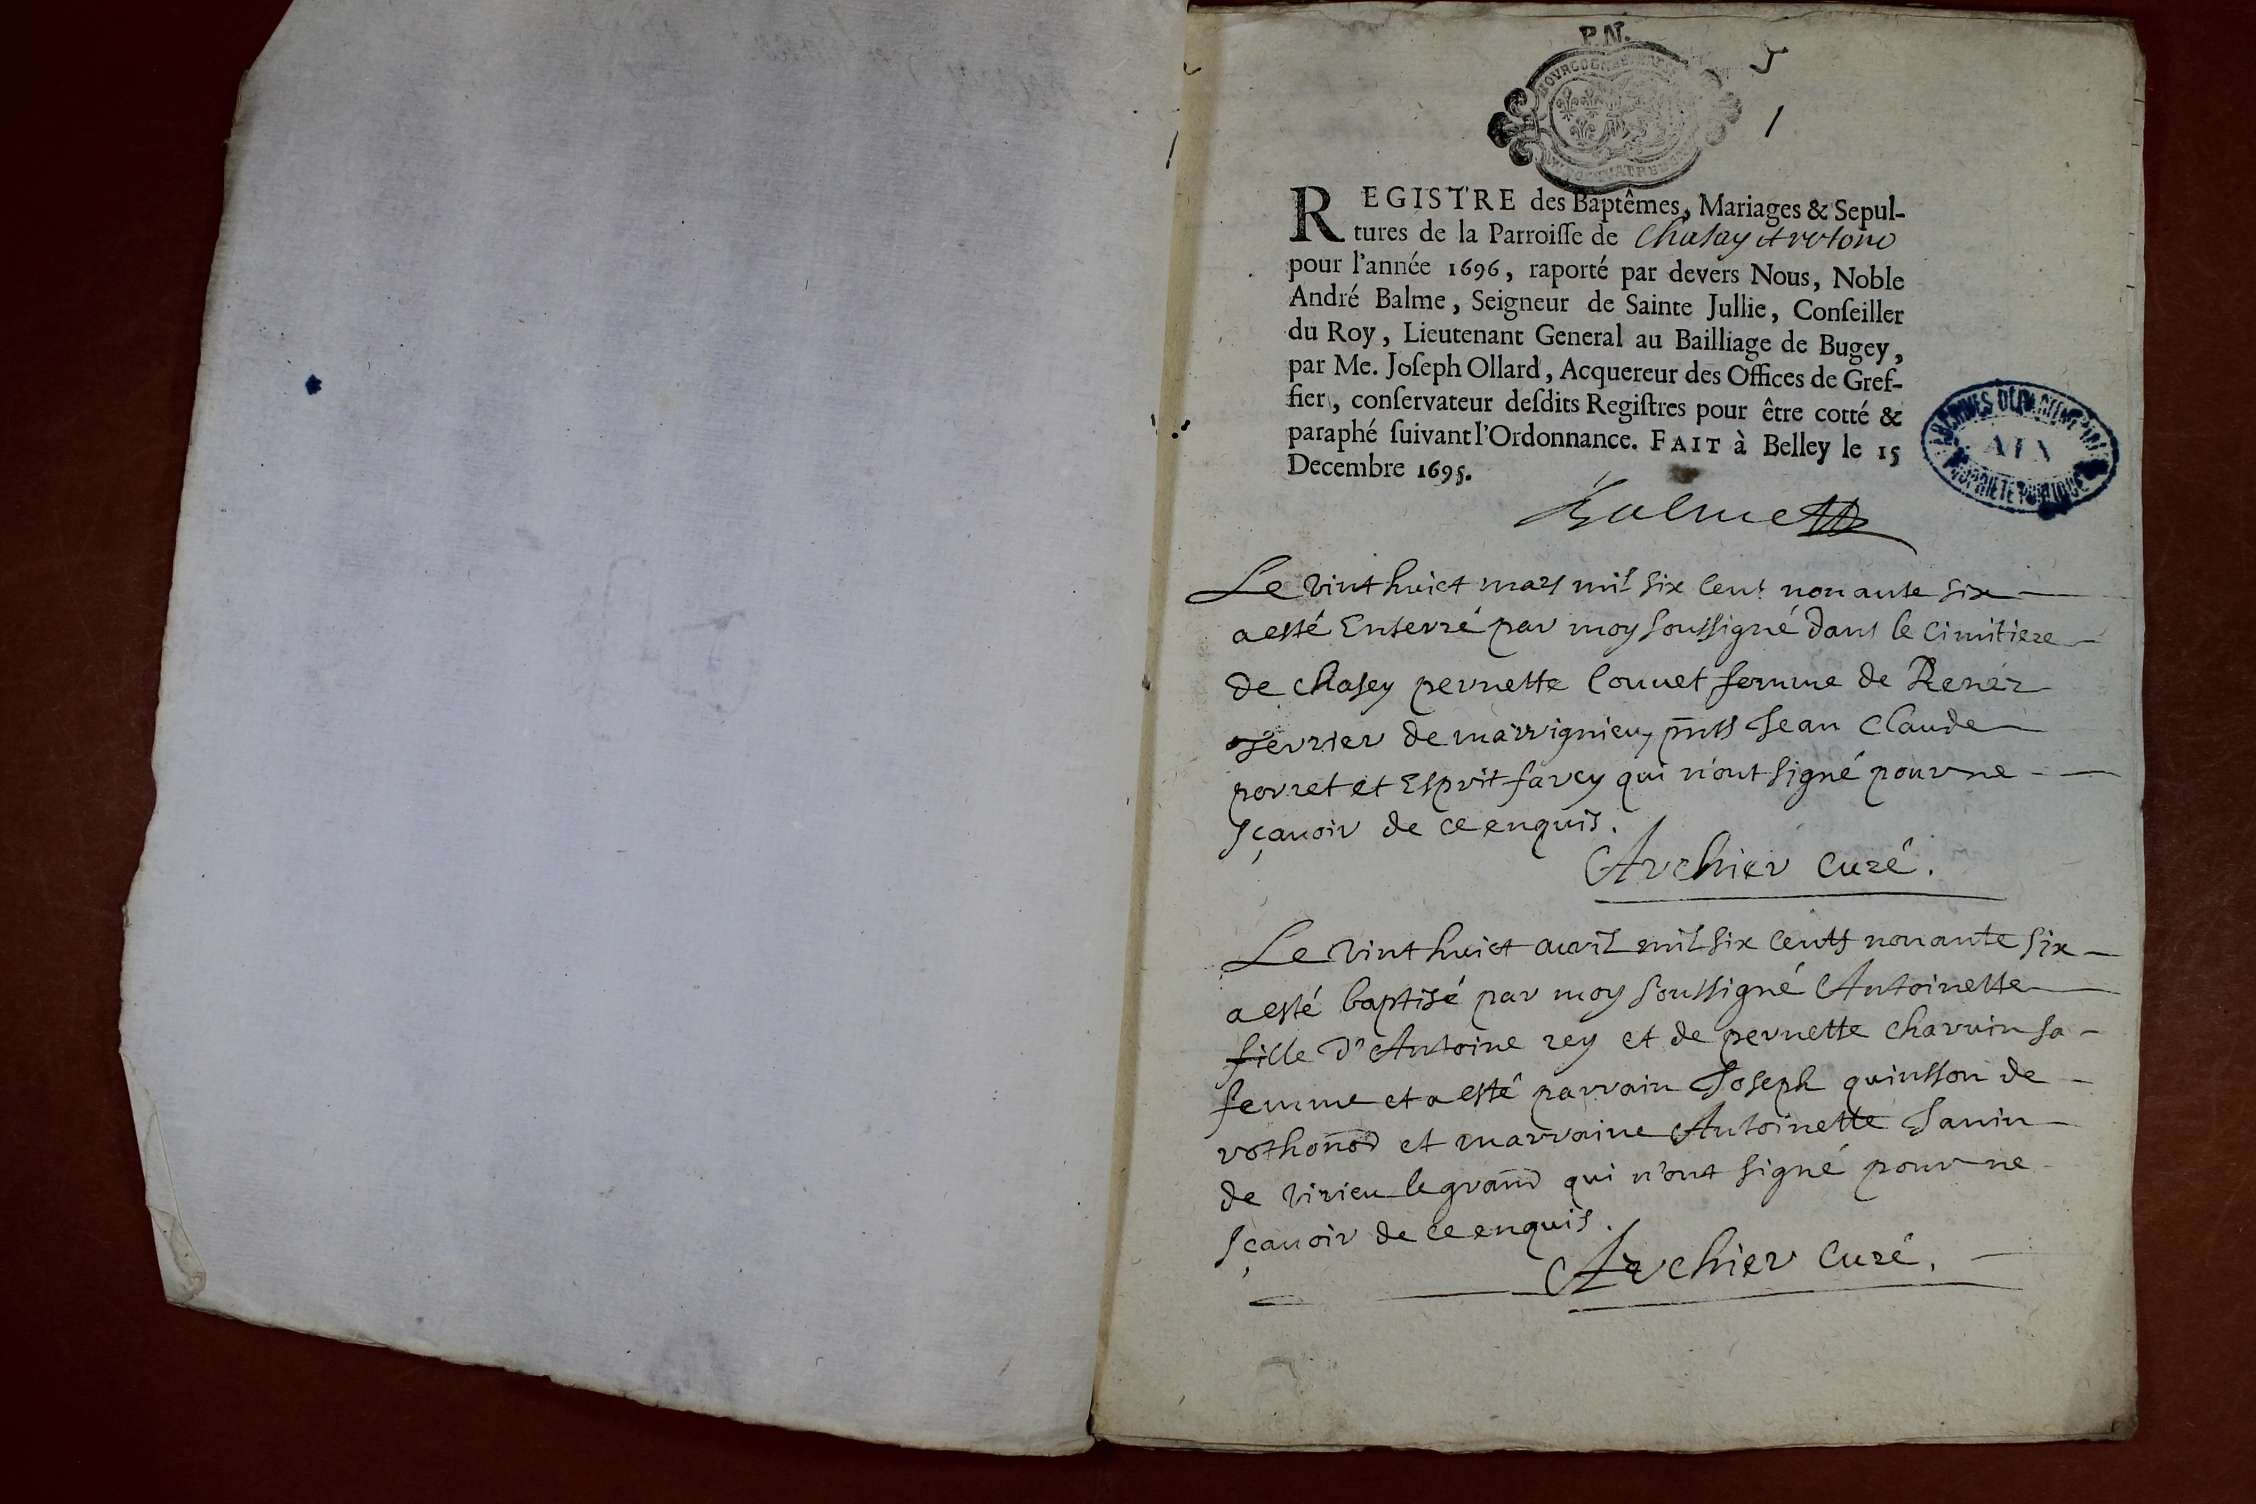 P.N.
5
1
REGISTRE des Baptêmes, Mariages & Sepul-
tures de la Parroisse de Chasay et votono
pour l'année 1696, raporté par devers Nous, Noble
André Balme, Seigneur de Sainte Jullie, Conseiller
du Roy, Lieutenant General au Bailliage de Bugey,
par Me. Joseph Ollard, Acquereur des Offices de Gref-
fier, conservateur desdits Registres pour être cotté &
paraphé suivant l'Ordonnance. FAIT à Belley le 15
Decembre 1695.
ARCHIVES DEPARTEMENTALES
AIN
PROPRIETE PUBLIQUE
Balme
Le vint huict mars mil six cent nonante six
a esté Enterré par moy soussigné dans le cimitiere
de chasey pernette Couvet femme de Renér
ferrier de marrignieu, pnts Jean Claude
porret et Esprit farcy qui n'ont signé pour ne
sçauoir de ce enquis.
Archier curé.
Le vint huict auril mil six cents nonante six
a esté baptisé par moy soussigné Antoinette
fille d'Antoine rey et de pernette charvin sa
femme et a esté parrain Joseph quinsson de
vothonod et marraine Antoinette Janin
de virieu le grand qui n'ont signé pour ne
sçauoir de ce enquis.
Archier curé.